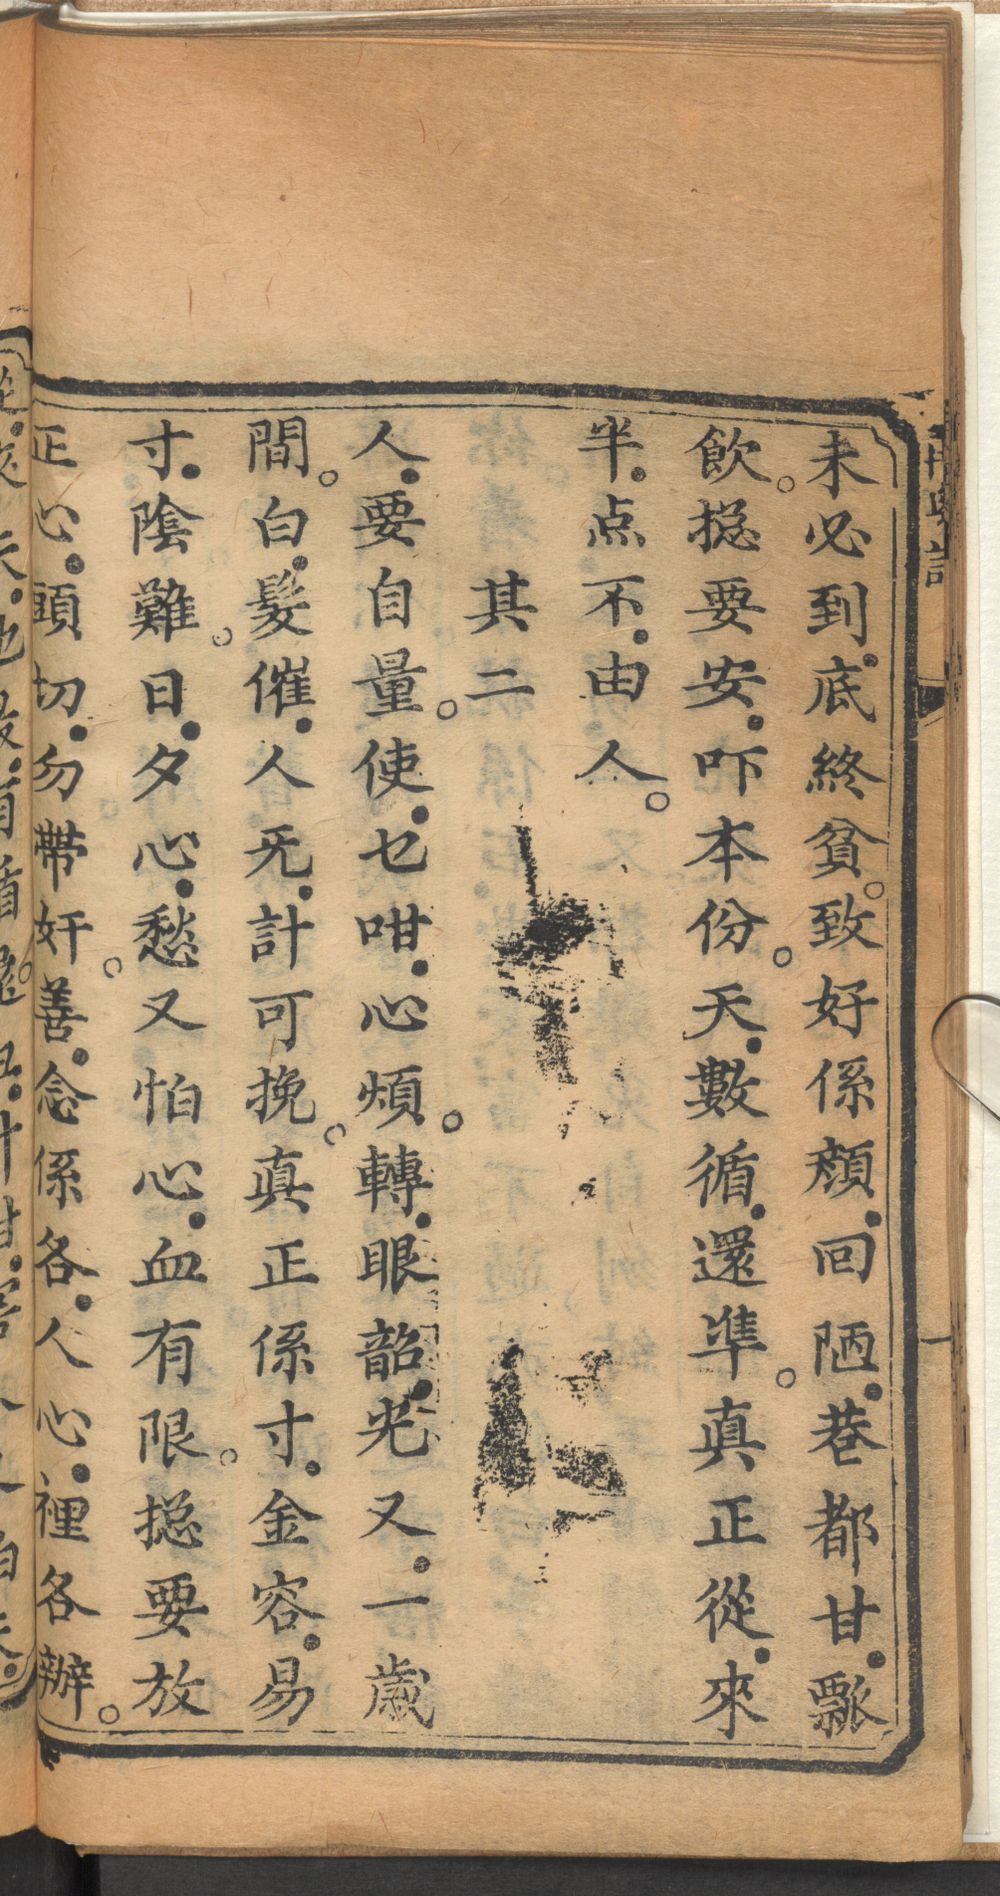 未必到底終貧致好係顔回陋巷都甘瓢
飲揔要安吓本份天數循還凖真正從來
半点不由人
其二
人要自量使乜咁心煩轉眼韶光又一歳
間白髮催人旡計可挽真正係寸金容易
寸陰難日夕心愁又怕心血有限揔要放
正心頭切勿帶奸善念係各人心裡各辦